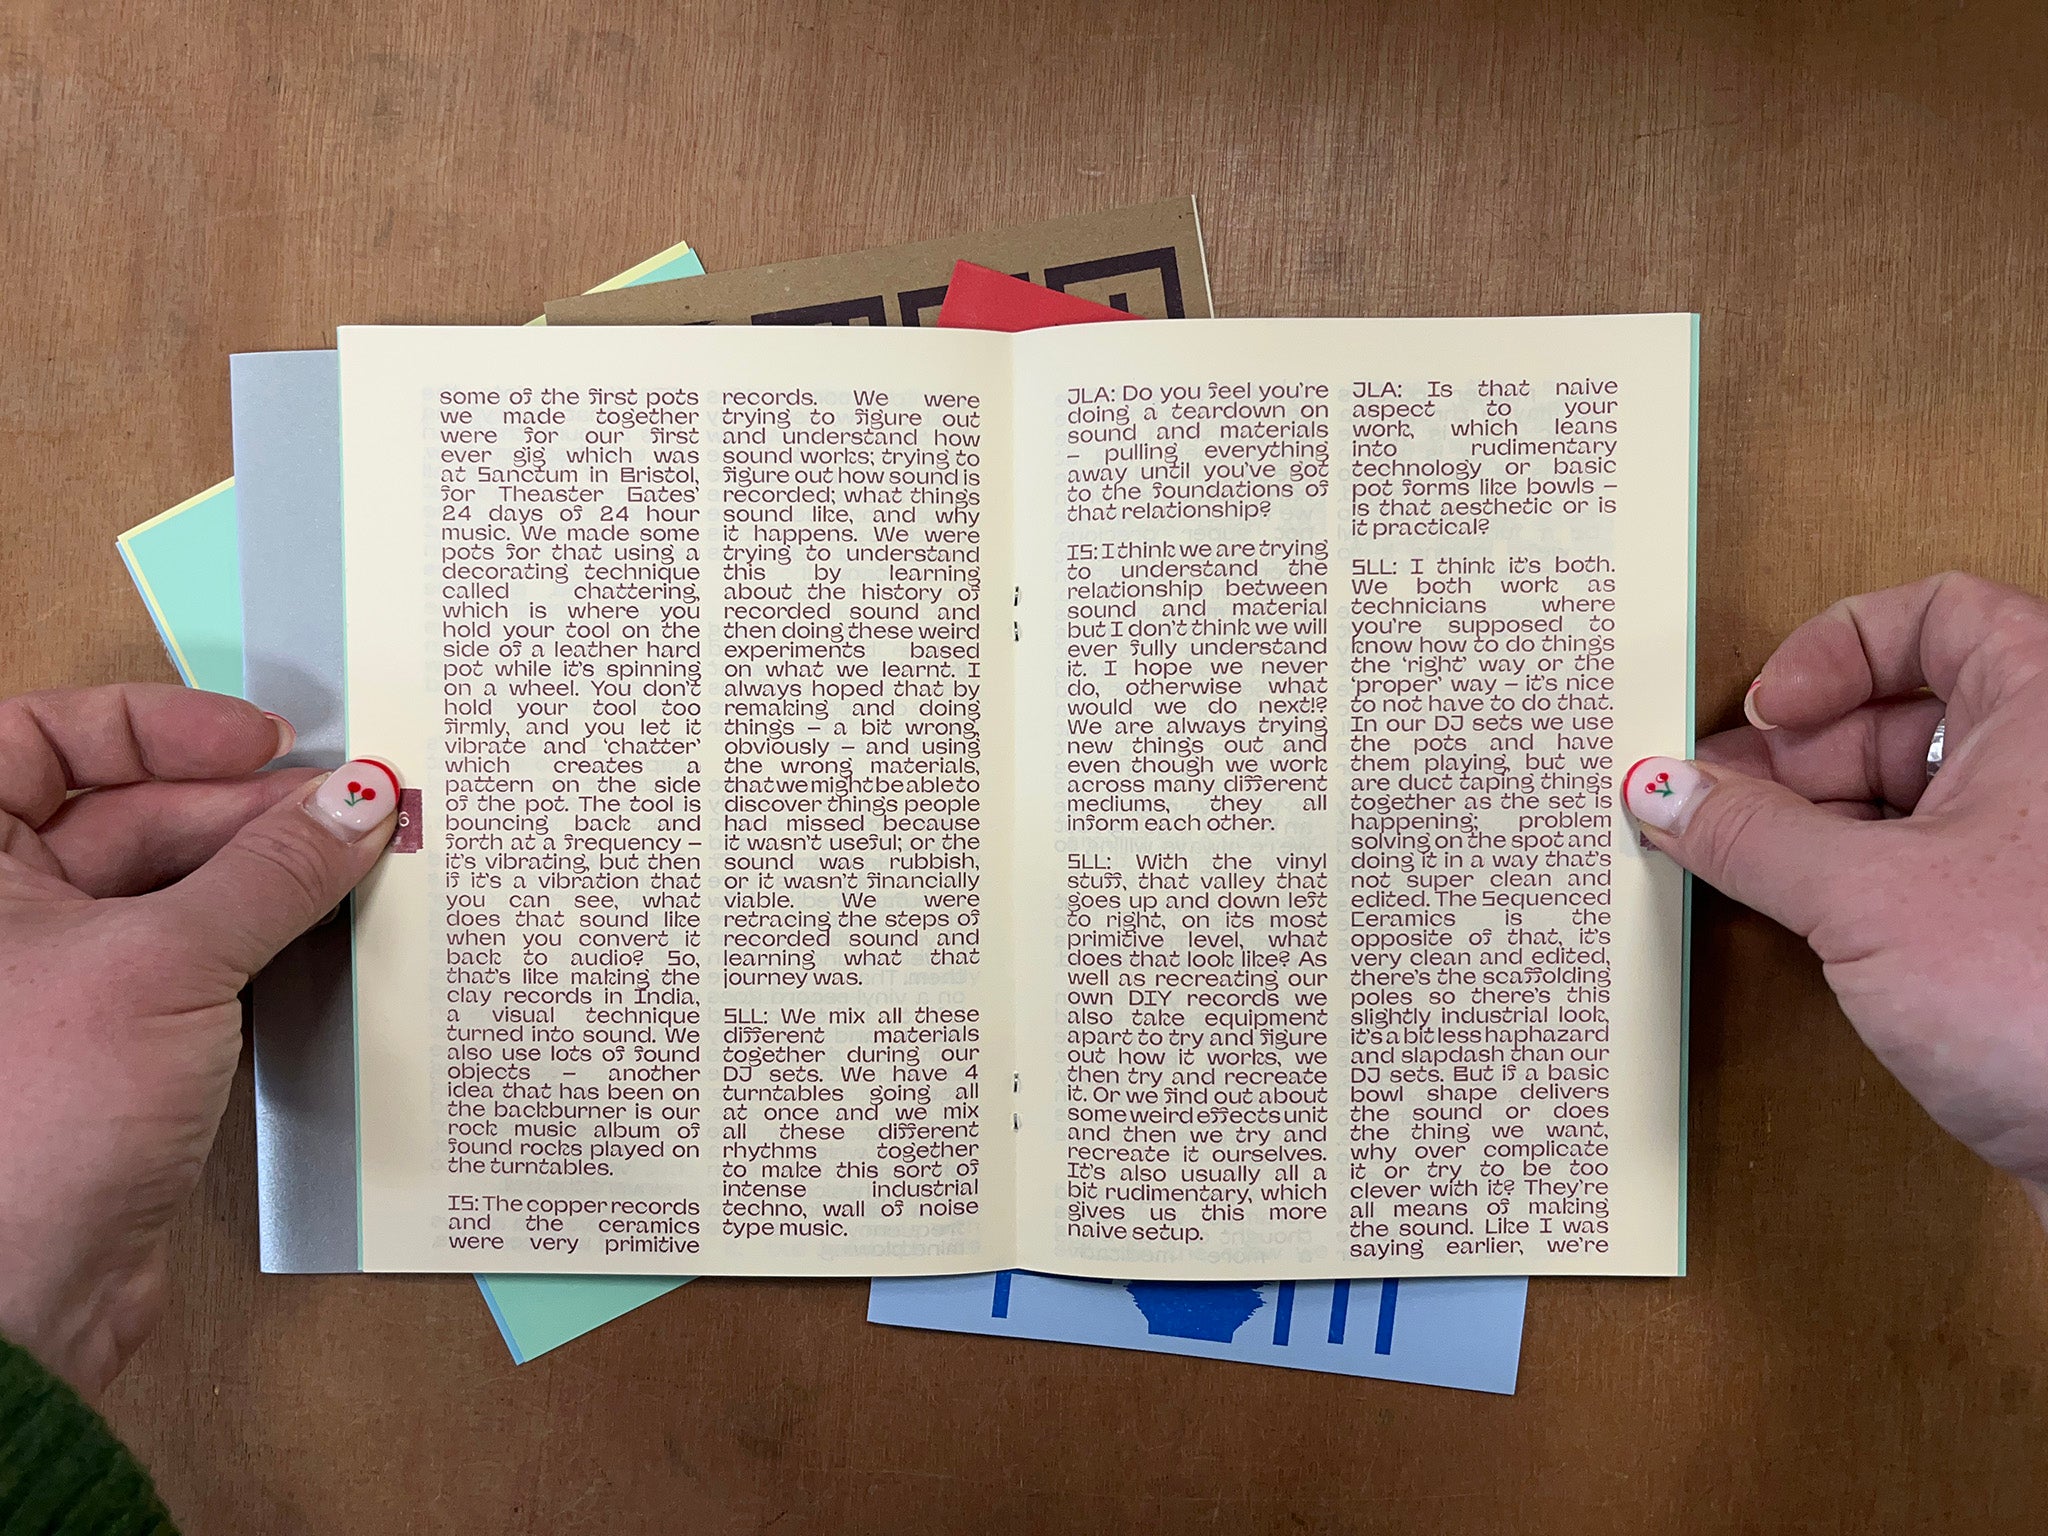 some of the first pots
we made together
were for our first
ever gig which was
at Sanctum in Bristol,
for Theaster Gates'
24 days of 24 hour
music. We made some
pots for that using a
decorating technique
called chattering,
which is where you
hold your tool on the
side of a leather hard
pot while it's spinning
on a wheel. You don't
hold your tool too
firmly, and you let it
vibrate and 'chatter'
which creates a
pattern on the side
of the pot. The tool is
bouncing back and
forth at a frequency –
it's vibrating, but then
if it's a vibration that
you can see, what
does that sound like
when you convert it
back to audio? So,
that's like making the
clay records in India,
a visual technique
turned into sound. We
also use lots of found
objects – another
idea that has been on
the backburner is our
rock music album of
found rocks played on
the turntables.
IS: The copper records
and the ceramics
were very primitive
records. We were
trying to figure out
and understand how
sound works; trying to
figure out how sound is
recorded; what things
sound like, and why
it happens. We were
trying to understand
this by learning
about the history of
recorded sound and
then doing these weird
experiments based
on what we learnt. I
always hoped that by
remaking and doing
things – a bit wrong,
obviously – and using
the wrong materials,
that we might be able to
discover things people
had missed because
it wasn't useful; or the
sound was rubbish,
or it wasn't financially
viable. We were
retracing the steps of
recorded sound and
learning what that
journey was.
SLL: We mix all these
different materials
together during our
DJ sets. We have 4
turntables going all
at once and we mix
all these different
rhythms together
to make this sort of
intense industrial
techno, wall of noise
type music.
JLA: Do you feel you're
doing a teardown on
sound and materials
– pulling everything
away until you've got
to the foundations of
that relationship?
IS: I think we are trying
to understand the
relationship between
sound and material
but I don't think we will
ever fully understand
it. I hope we never
do, otherwise what
would we do next!?
We are always trying
new things out and
even though we work
across many different
mediums, they all
inform each other.
SLL: With the vinyl
stuff, that valley that
goes up and down left
to right, on its most
primitive level, what
does that look like? As
well as recreating our
own DIY records we
also take equipment
apart to try and figure
out how it works, we
then try and recreate
it. Or we find out about
some weird effects unit
and then we try and
recreate it ourselves.
It's also usually all a
bit rudimentary, which
gives us this more
naive setup.
JLA: Is that naive
aspect to your
work, which leans
into rudimentary
technology or basic
pot forms like bowls –
is that aesthetic or is
it practical?
SLL: I think it's both.
We both work as
technicians where
you're supposed to
know how to do things
the 'right' way or the
'proper' way – it's nice
to not have to do that.
In our DJ sets we use
the pots and have
them playing, but we
are duct taping things
together as the set is
happening; problem
solving on the spot and
doing it in a way that's
not super clean and
edited. The Sequenced
Ceramics is the
opposite of that, it's
very clean and edited,
there's the scaffolding
poles so there's this
slightly industrial look,
it's a bit less haphazard
and slapdash than our
DJ sets. But if a basic
bowl shape delivers
the sound or does
the thing we want,
why over complicate
it or try to be too
clever with it? They're
all means of making
the sound. Like I was
saying earlier, we're